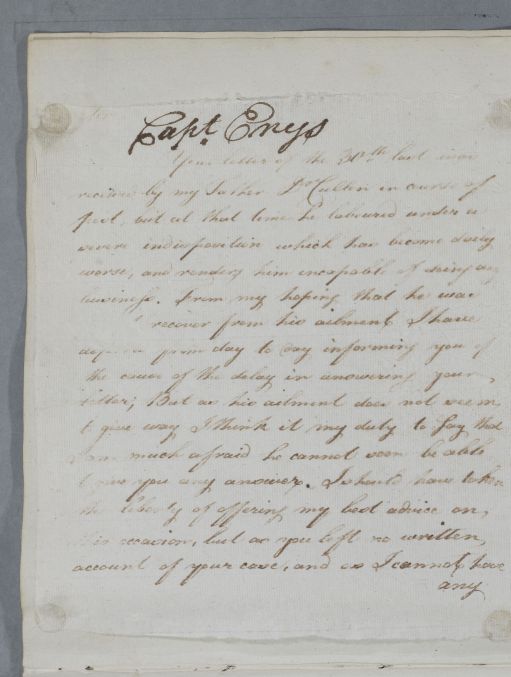 Sir
Capt. Enys
Your letter of the 30th last was
received by my Father Dr Cullen in course of
post, but at that time he laboured under a
severe indisposition which has become daily
worse, and renders him incapable of doing any
business. From my hoping that he was
recover from his ailment I have
from day to day informing you of
the cause of the delay in answering your
letter; But as his ailment does not seem
to give way I think it my duty to say that
I am much afraid he cannot soon be able
to give you any answer. I should have taken
the liberty of offering my best advice on
this occasion, but as you left no written
account of your case, and as I cannot have
any